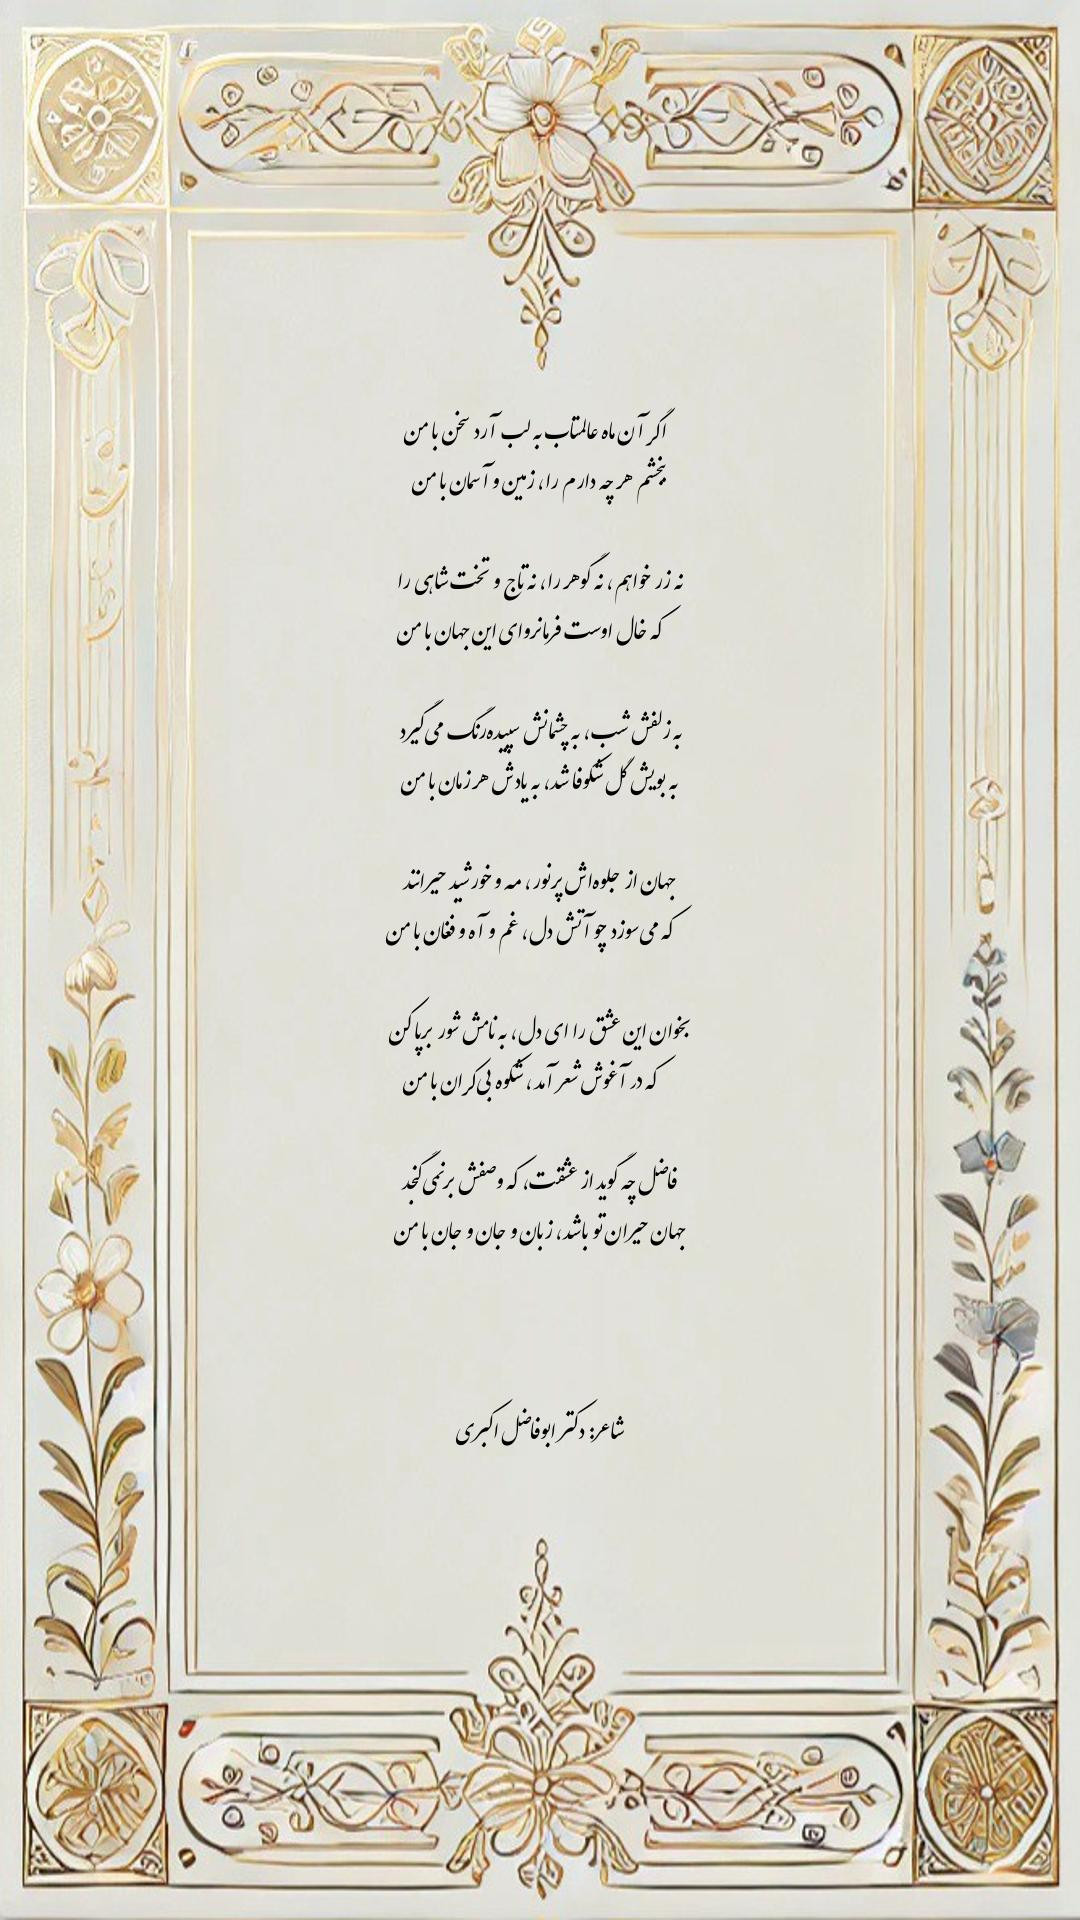 اگر آن ماه عالمتاب به لب آرد سخن با من
ببخشم هر چه دارم را، زمین و آسمان با من
نه زر خواهم، نه گوهر را، نه تاج و تخت شاهی را
که خال اوست فرمانروای این جهان با من
به زلفش شب، به چشمانش سپیده رنگ می‌گیرد
به بویش گل شکوفا شد، به یادش هر زمان با من
جهان از جلوه‌اش پرنور، مه و خورشید حیرانند
که می‌سوزد چو آتش دل، غم و آه و فغان با من
بخوان این عشق را ای دل، به نامش شور برپا کن
که در آغوش شعر آمد، شکوه بی‌کران با من
فاضل چه گوید از عشقت، که وصفش برنمی‌گنجد
جهان حیران تو باشد، زبان و جان و جان با من
شاعر: دکتر ابوفاضل اکبری